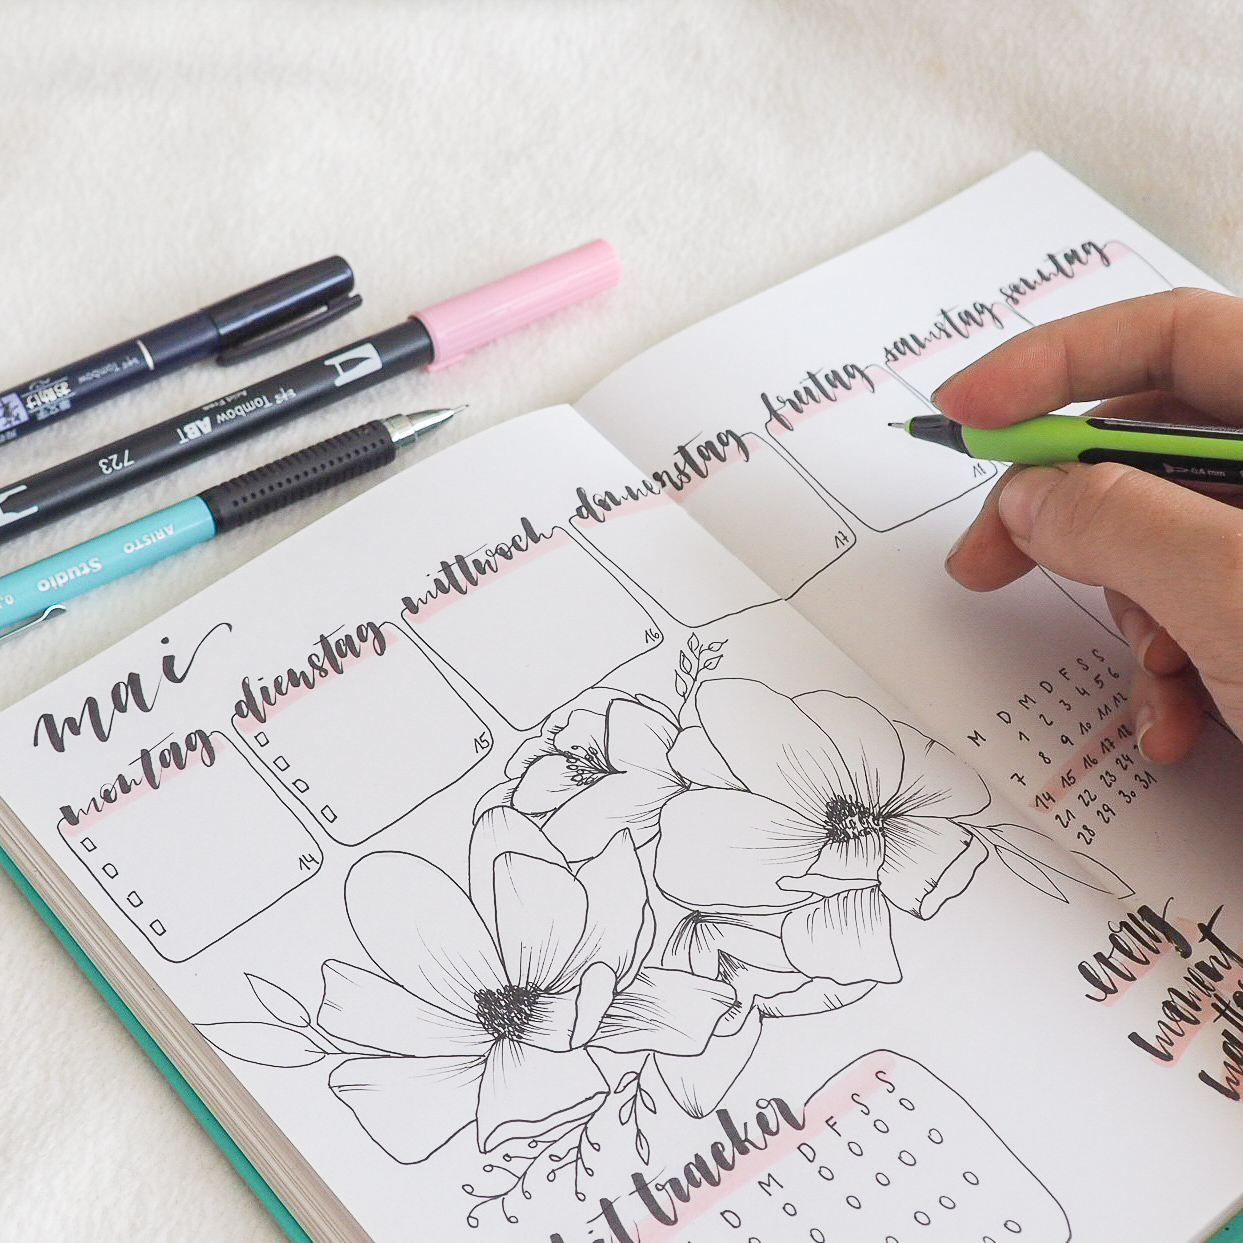 Tombow
Tombow ABT
Acid Free
723
ARISTO
Studio
0,6 mm
mai
montag
14
dienstag
15
mittwoch
16
donnerstag
freitag
17
samstag
18
sonntag
M D M D F S S
1 2 3 4 5 6
7 8 9 10 11 12
14 15 16 17 18
21 22 23 24
28 29 30 31
every
moment
tracker
D M D F S S